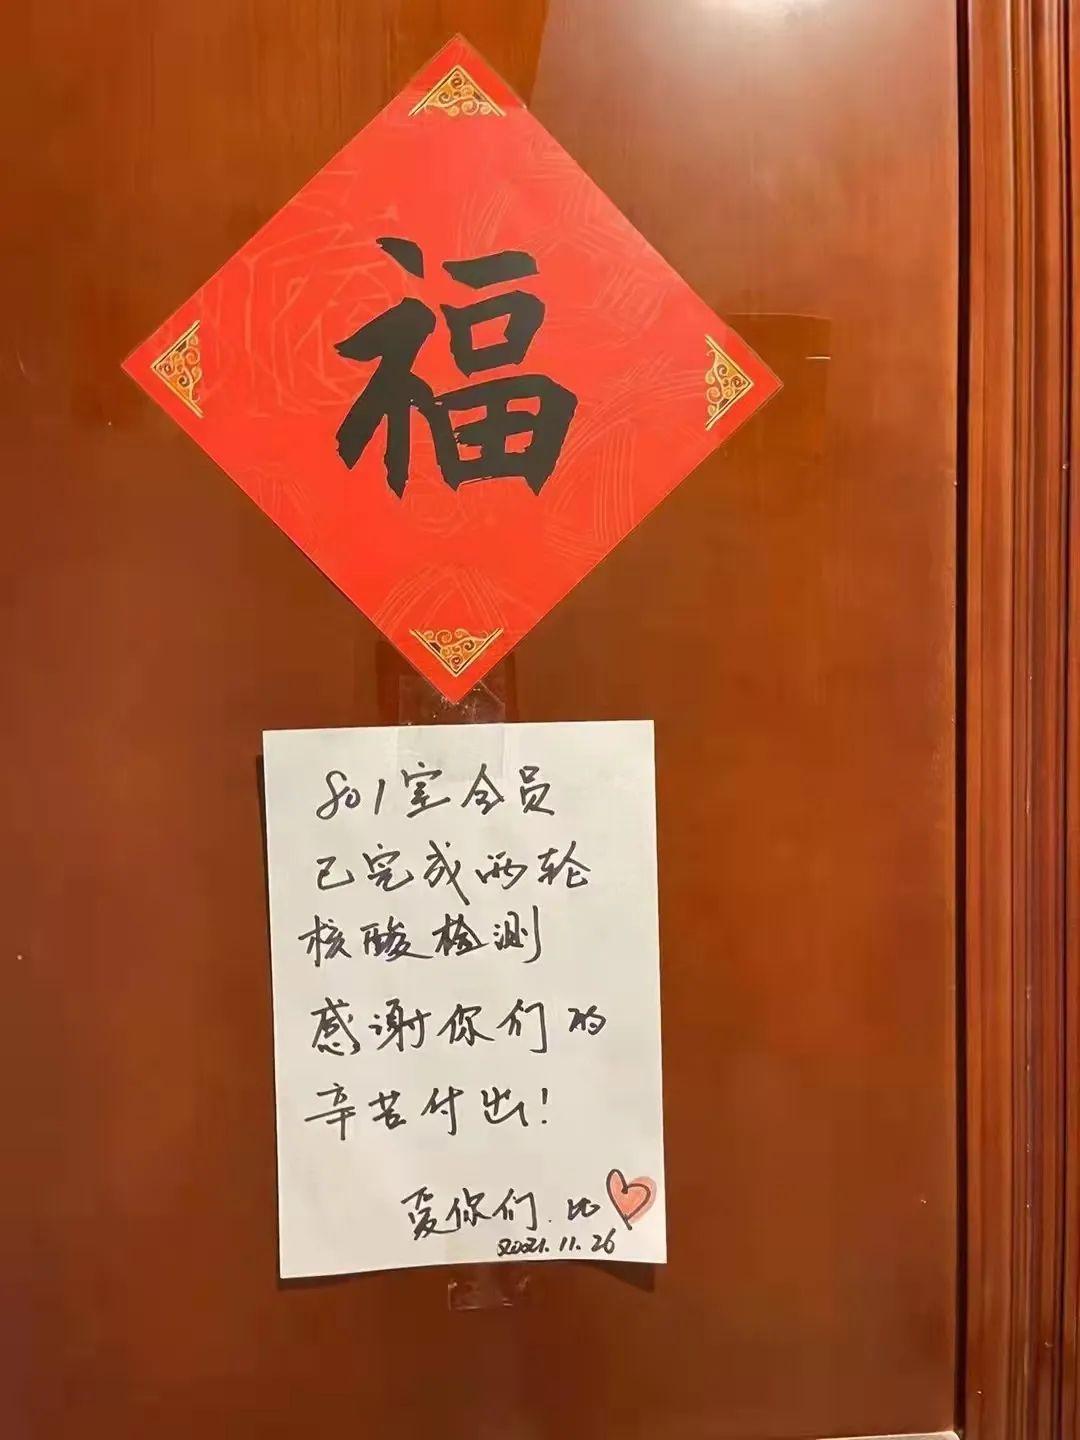 福
801室全员
已完成两轮
核酸检测
感谢你们的
辛苦付出!
爱你们.比
2021.11.26